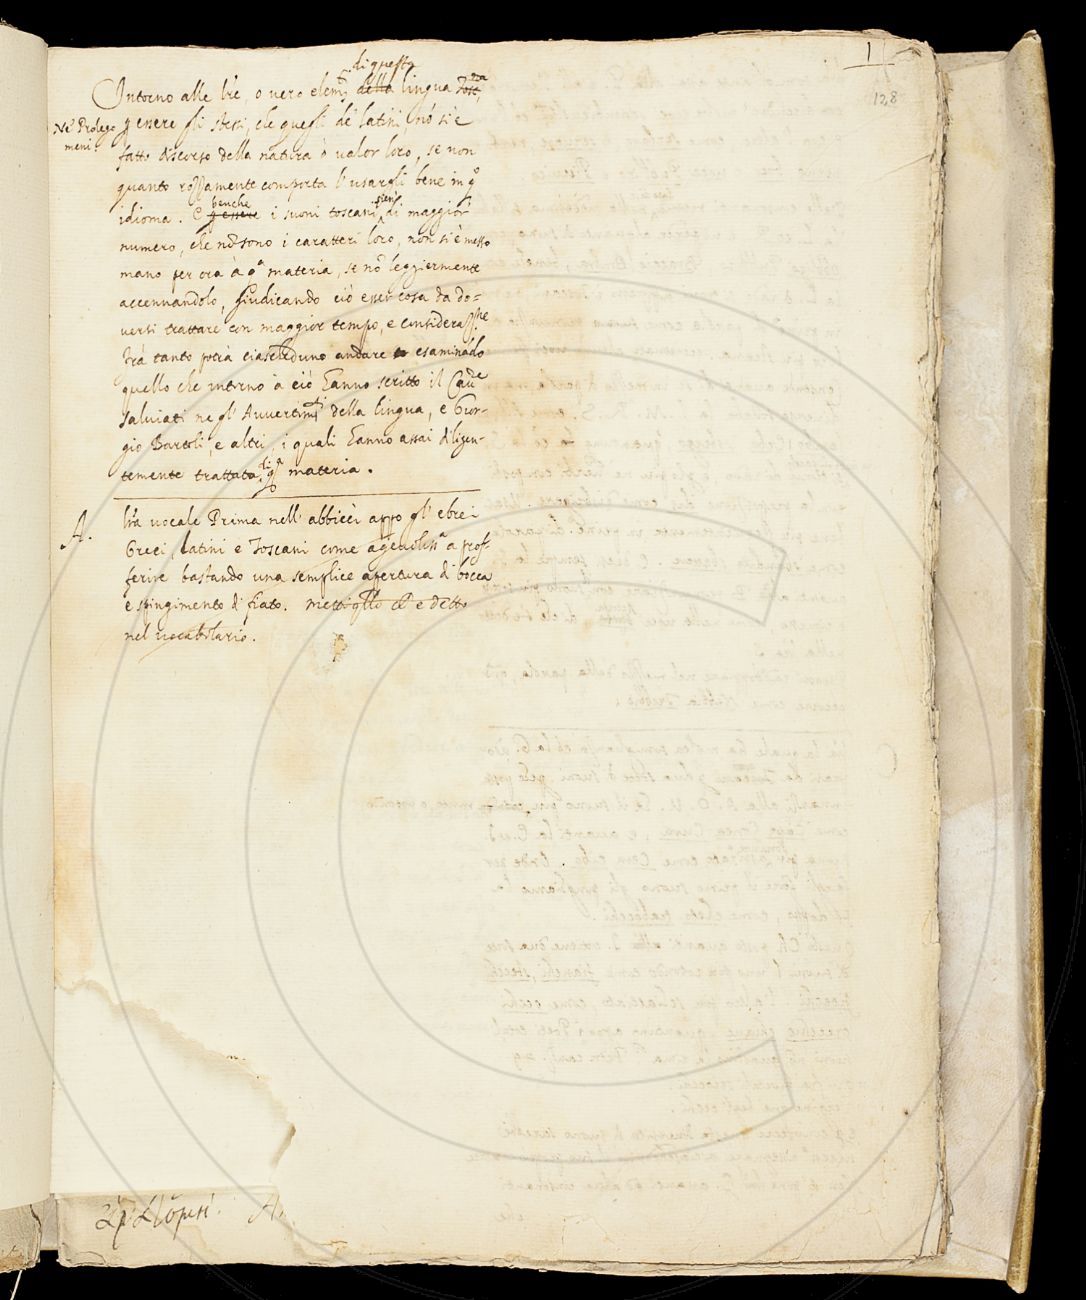 1
128
di questa
Intorno alle lre, o vero elemti della lingua Tosc.na
Ne' Prolego
meni.
p essere gli stessi, che quegli de' latini nō si è
fatto discorso della natura ò valor loro, se non
quanto rozzamente comporta l'usargli bene in qo
idioma. E benche p essere i suoni toscani sieno di maggior
numero, che nō sono i caratteri loro, non si è messo
mano per ora à qa materia, se nō leggiermente
accennandolo, giudicando ciò esser cosa da do=
versi trattare con maggior tempo, e considerazne
Trà tanto potrà ciascheduno andare esaminādo
quello che intorno à ciò hanno scritto il Cavre
Salviati negl' Avvertimti della lingua, e Gior-
gio Bartoli, e altri, i quali hanno assai diligen-
temente trattata di qa materia.
A.
lra vocale Prima nell' abbiccì appo gl' ebrei
Greci, latini e Toscani come agevoliss.a a prof-
ferire bastando una semplice apertura di bocca
e spingimento di fiato. mettiglo ch' e detto
nel vocabolario.
A.